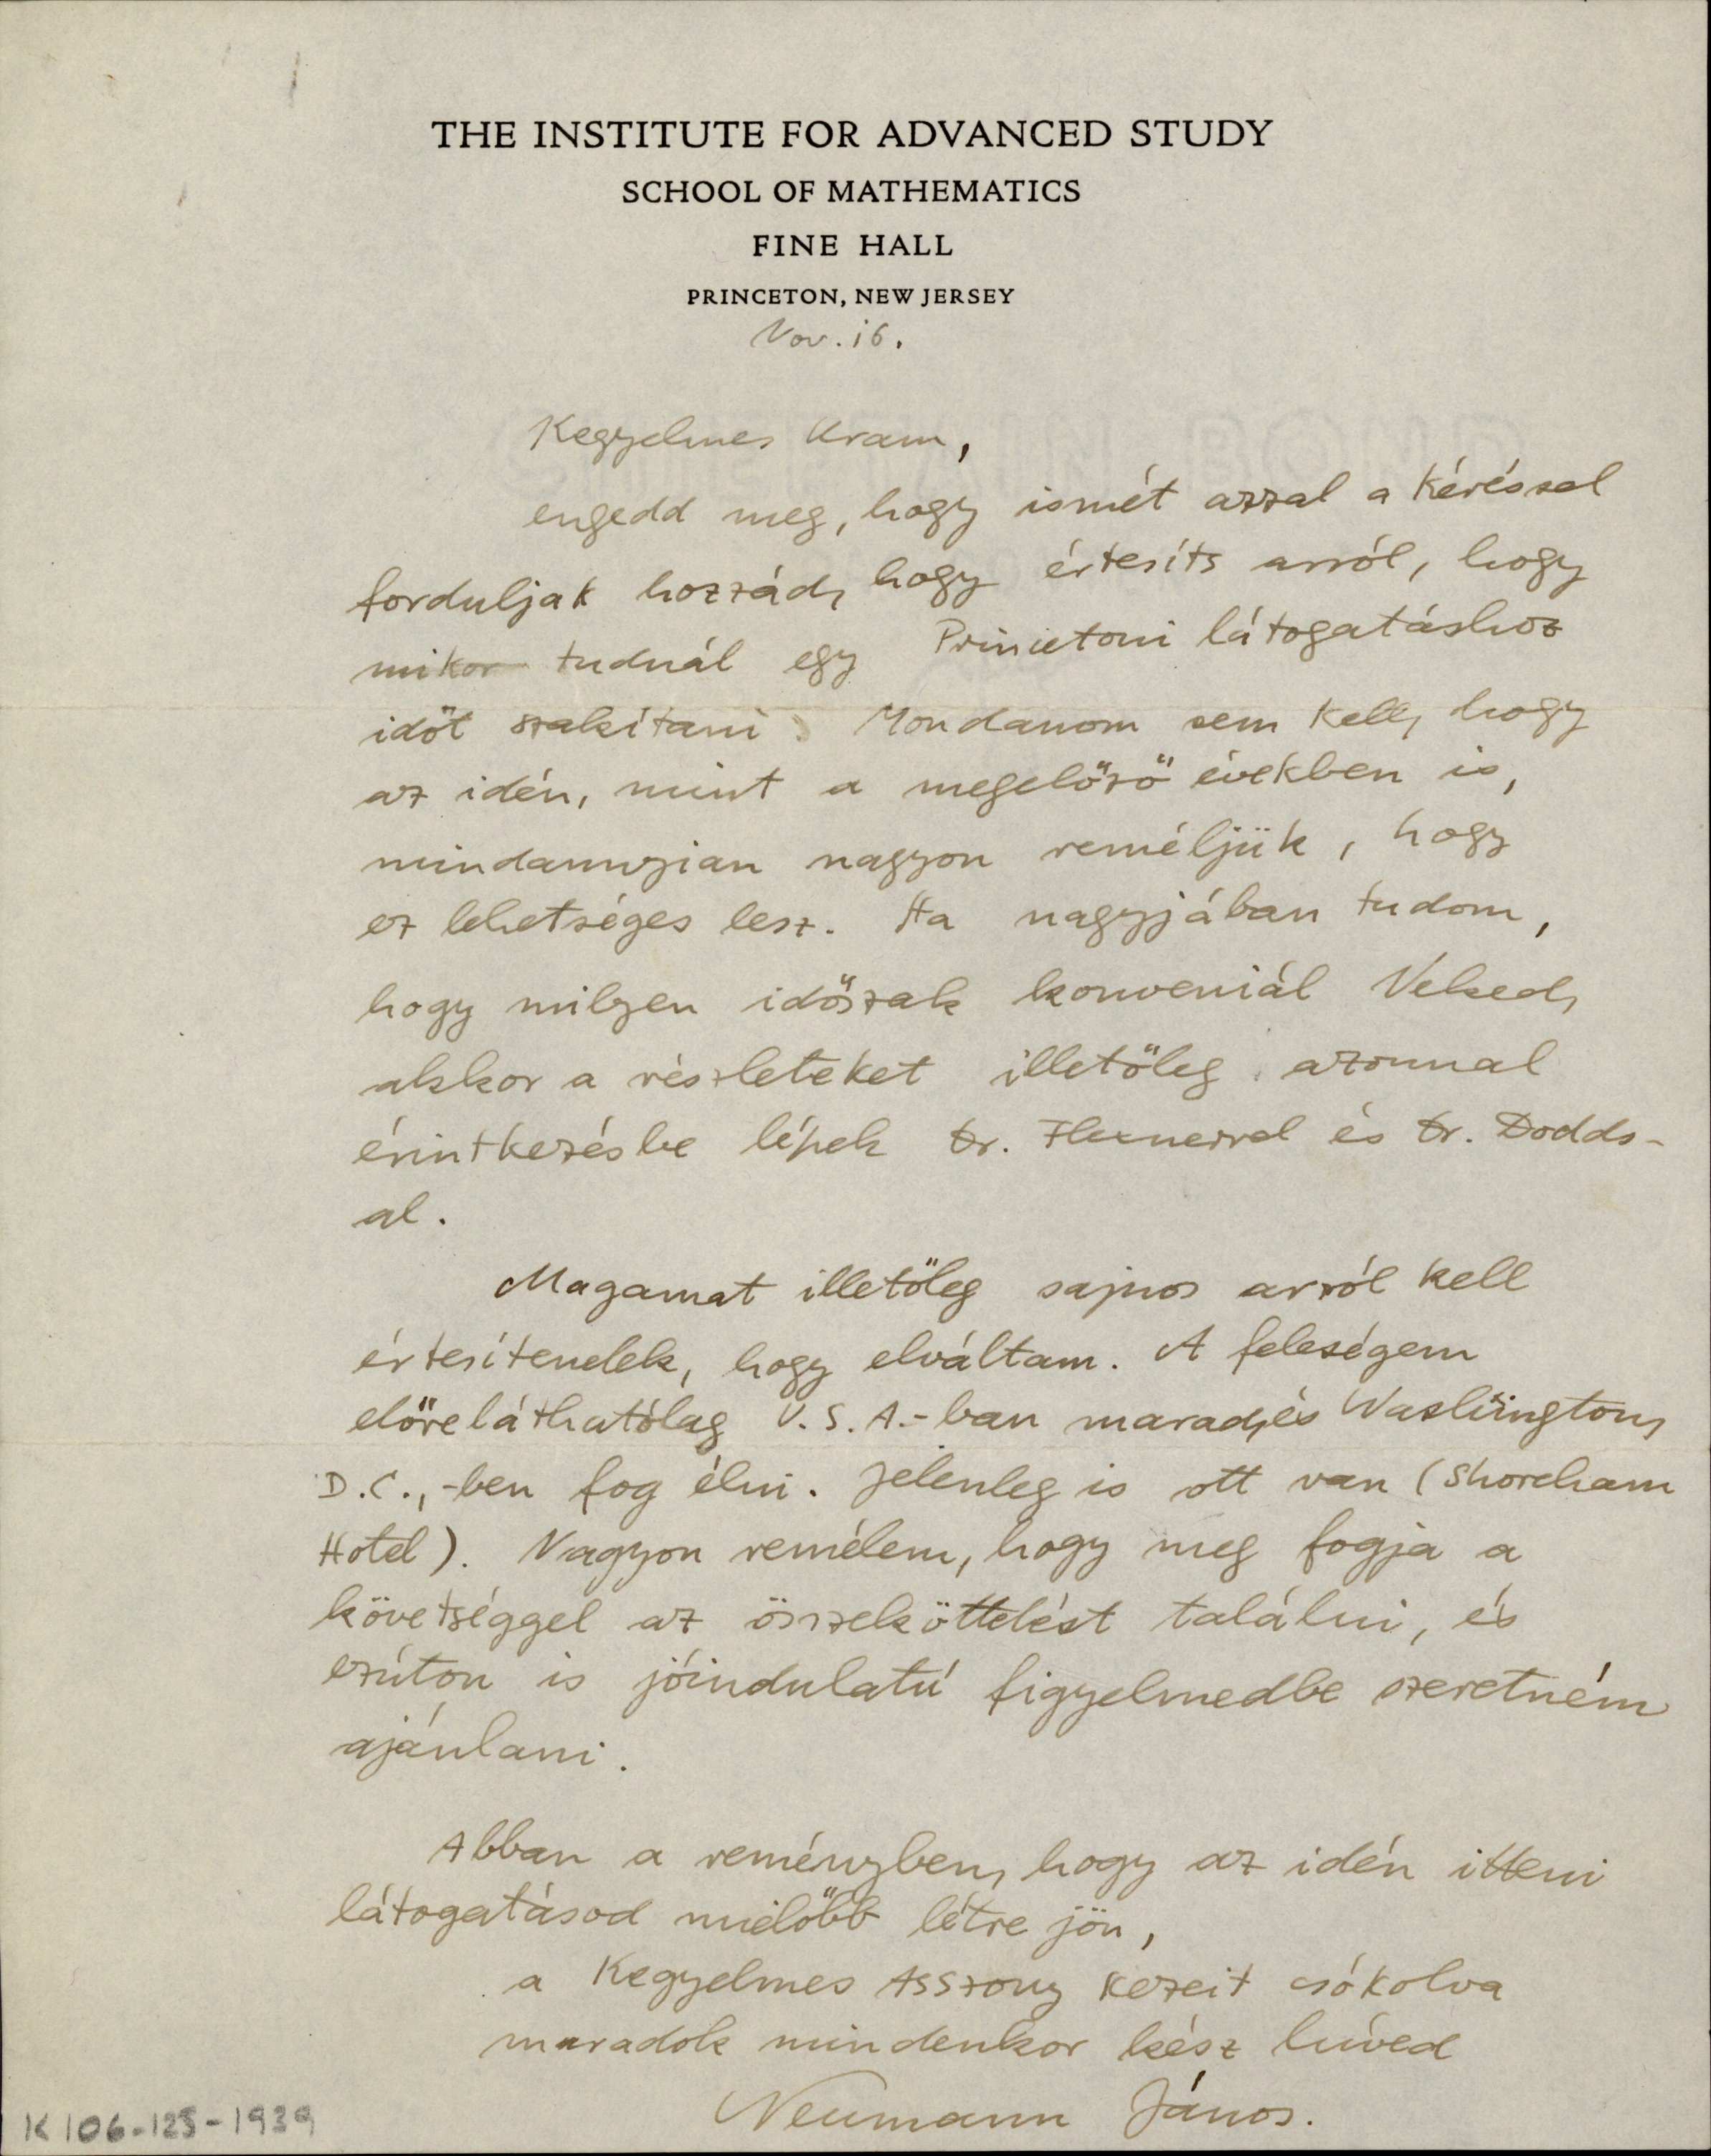 THE INSTITUTE FOR ADVANCED STUDY
SCHOOL OF MATHEMATICS
FINE HALL
PRINCETON, NEW JERSEY
Nov. 16.
Kegyelmes Uram,
engedd meg, hogy ismét azzal a kéréssel
forduljak hozzád, hogy értesíts arról, hogy
mikor tudnál egy Princetoni látogatáshoz
időt szakítani. Mondanom sem kell, hogy
az idén, mint a megelőző években is,
mindannyian nagyon reméljük, hogy
ez lehetséges lesz. Ha nagyjában tudom,
hogy milyen időszak konveniál Neked,
akkor a részleteket illetőleg azonnal
érintkezésbe lépek Dr. Flexnerrel és Dr. Dodds-
al.
Magamat illetőleg sajnos arról kell
értesítenelek, hogy elváltam. A feleségem
előreláthatólag U.S.A.-ban marad, és Washington,
D.C.,-ben fog élni. Jelenleg is ott van (Shoreham
Hotel). Nagyon remélem, hogy meg fogja a
követséggel az összeköttetést találni, és
ezúton is jóindulatú figyelmedbe szeretném
ajánlani.
Abban a reményben, hogy az idén itteni
látogatásod mielőbb létre jön,
a Kegyelmes Asszony kezeit csókolva
maradok mindenkor kész híved
Neumann János.
K 106-125-1939